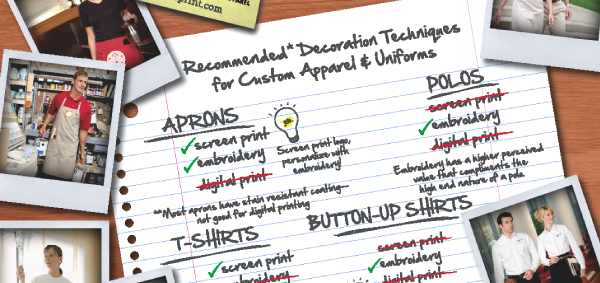 print.com
Recommended* Decoration Techniques
for Custom Apparel & Uniforms
APRONS
screen print
embroidery
digital print
Screen print logo,
personalize with
embroidery!
**Most aprons have stain resistant coating—
not good for digital printing
POLOS
screen print
embroidery
digital print
Embroidery has a higher perceived
value that compliments the
high end nature of a polo
T-SHIRTS
screen print
embroidery
BUTTON-UP SHIRTS
screen print
embroidery
digital print